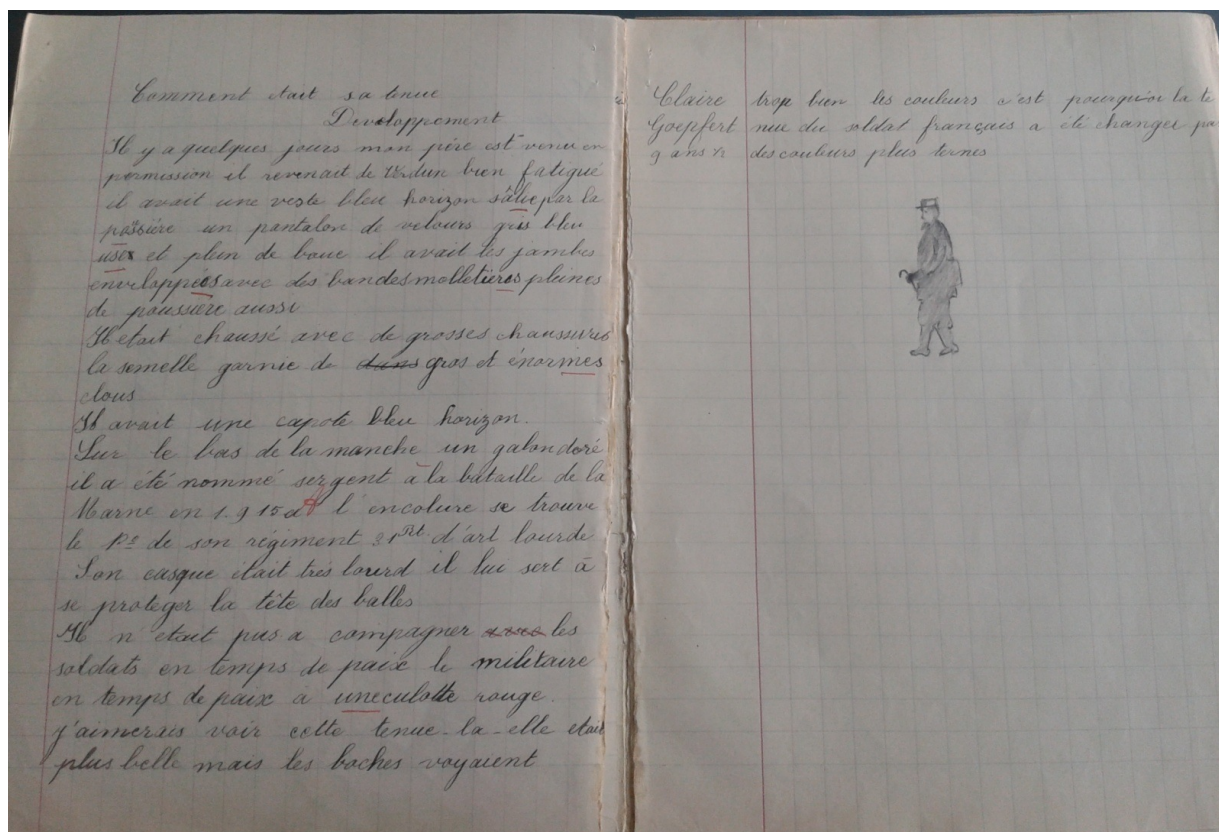 Comment était sa tenue
Developpement
Il y a quelques jours mon père est venu en
permission il revenait de Verdun bien fatigué
il avait une veste bleu horizon sâlie par la
poussière un pantalon de velours gris bleu
usex et plein de boue il avait les jambes
enveloppées avec des bandes molletières pleines
de poussière aussi
Il etait chaussé avec de grosses chaussures
la semelle garnie de dans gros et énormes
clous
Il avait une capote bleu horizon.
Sur le bas de la manche un galon doré
il a été nommé sergent à la bataille de la
Marne en 1.915 a l'encolure se trouve
le de son régiment d'art lourde
Son casque était très lourd il lui sert à
se proteger la tête des balles
Il n'etait pas a compagner avec les
soldats en temps de paix le militaire
en temps de paix à une culotte rouge.
j'aimerais voir cette tenue-la-elle etait
plus belle mais les boches voyaient
Claire
Goepfert
9 ans
trop bien les couleurs c'est pourquoi la te
nue du soldat français a été changer pa
des couleurs plus ternes